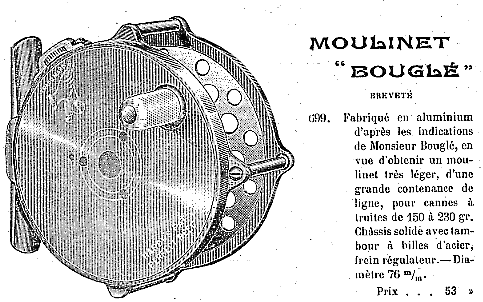 MOULINET
"BOUGLÉ"
BREVETÉ
699. Fabriqué en aluminium
d'après les indications
de Monsieur Bouglé, en
vue d'obtenir un mou-
linet très léger, d'une
grande contenance de
ligne, pour cannes à
truites de 150 à 230 gr.
Châssis solide avec tam-
bour à billes d'acier,
frein régulateur.—Dia-
mètre 76 m/m.
Prix . . . 53 »